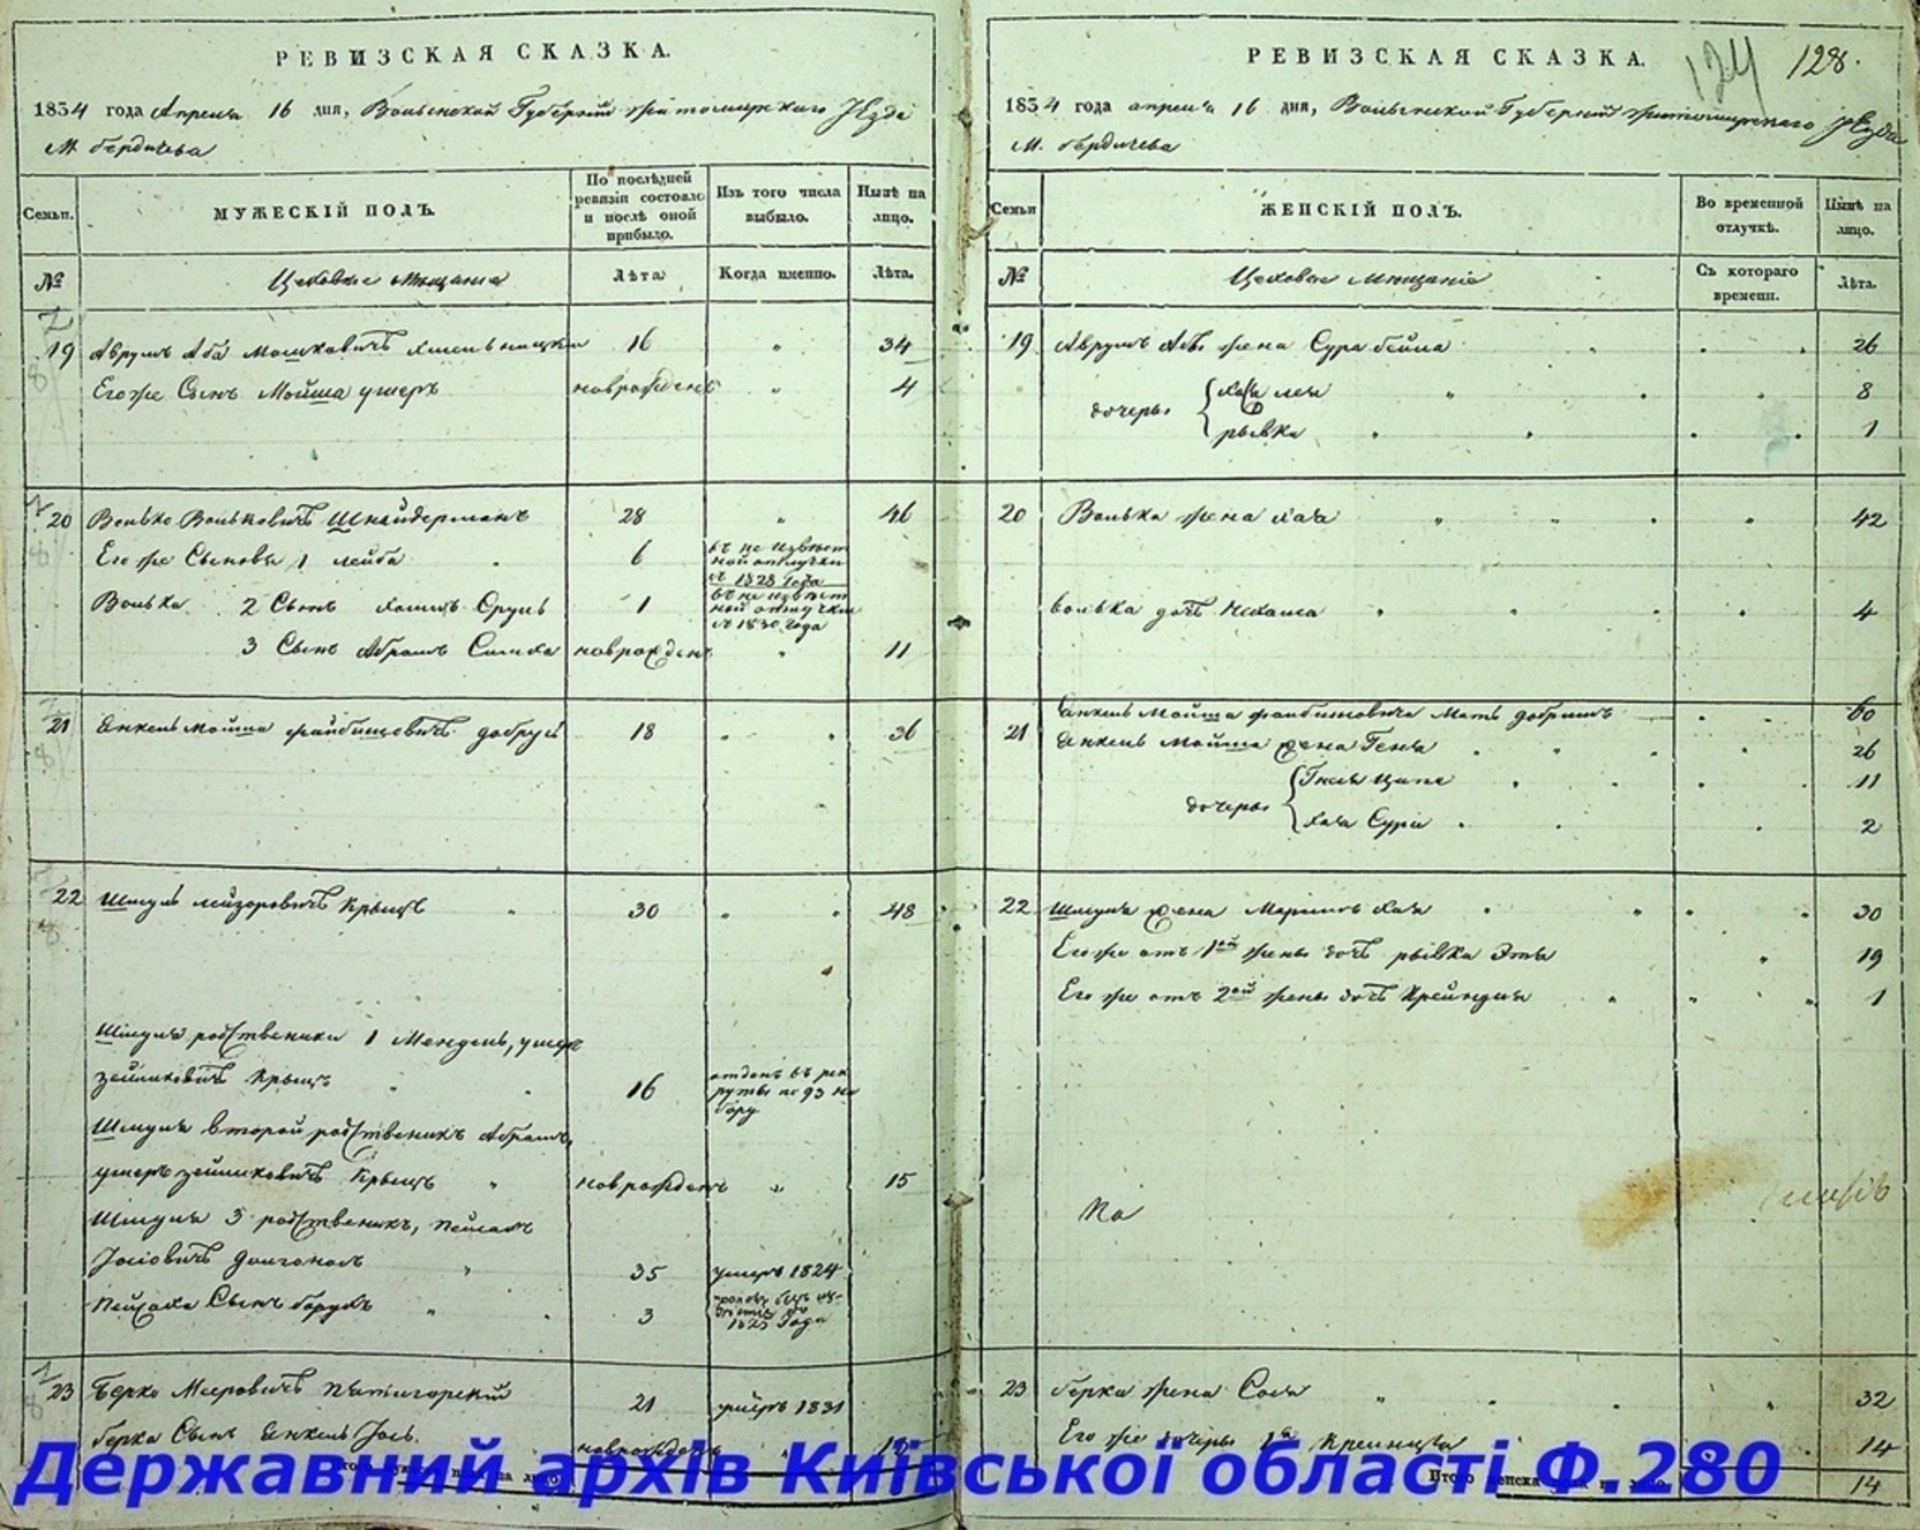 РЕВИЗСКАЯ СКАЗКА.
1834 года Апреля 16 дня, Волынской Губернии Житомирского Уезда
М. бердичева
Семьи.
МУЖЕСКІЙ ПОЛЪ.
По послѣдней ревизіи состояло и послѣ оной прибыло.
Изъ того числа выбыло.
Нынѣ на лицо.
№
Цеховые мещане
Лѣта
Когда именно.
Лѣта.
19 Аврумъ Аба Мошковичъ 16 34
Его же Сынъ Мойша ушеръ новрожденъ 4
20 Волько Вольковичъ Шнайдерманъ 28 46
Его же Сыновья 1 лейба 6 въ не извѣстной отлучки съ 1828 Года
Волька 2 Сынъ Хаимъ Сруль 1 въ не извѣстной отлучки съ 1830 Года
3 Сынъ Абрамъ Симха новрожденъ 11
21 Янкель мойша файбишовичъ добруй 18 36
22 Шмуль лейзоровичъ Крыщъ 30 48
Шмуля родственики 1 Мендель, ушеръ
зейликовичъ Крыщъ 16 отданъ въ рекруты по 93 набору
Шмуля второй родственикъ Абрамъ,
ушеръ зейликовичъ Крыщъ новрожденъ 15
Шмуля 3 родственикъ, пейсахъ
Іосіовичъ 35 умеръ 1824
пейсаха Сынъ борухъ 3
23 Берко Мееровичъ Пятигорскій 21 умеръ 1831
берка Сынъ Янкель Іось. новрожденъ
РЕВИЗСКАЯ СКАЗКА.
124 128.
1834 года апреля 16 дня, Волынской Губерніи Житомирскаго уезда
М. бердичева
Семьи
ЖЕНСКІЙ ПОЛЪ.
Во временной отлучкѣ.
Нынѣ на лицо.
№
Цеховые Мещаніе
Съ котораго времени.
Лѣта.
19 Аврумъ Абы жена Сура бейла 26
дочеры хая лея 8
рывка 1
20 Волька жена хая 42
волька дочъ Нехама 4
21 Янкель Мойша файбишовича Мать добришъ 60
Янкель мойша жена Геня 26
дочеры Гнеся ципе 11
хая Сура 2
22 Шмуля жена Марьямъ хая 30
Его же отъ 1ой жены дочъ рывка Этя 19
Его же отъ 2ой жены дочъ Крейндля 1
На
23 берка жена Сося 32
Его же дочеры 14
Итого женска на лицо 14
Державний архів Київської області Ф.280